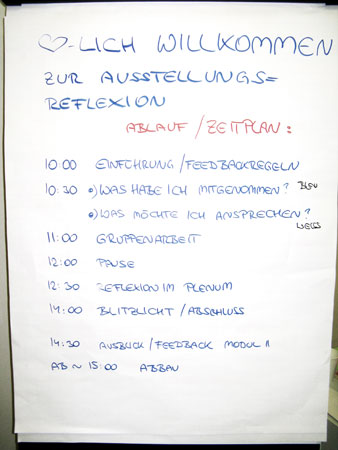 ♡-LICH WILLKOMMEN
ZUR AUSSTELLUNGS=
REFLEXION
ABLAUF/ZEITPLAN:
10:00 EINFÜHRUNG/FEEDBACKREGELN
10:30 •) WAS HABE ICH MITGENOMMEN? BLAU
•) WAS MÖCHTE ICH ANSPRECHEN? WEISS
11:00 GRUPPENARBEIT
12:00 PAUSE
12:30 REFLEXION IM PLENUM
14:00 BLITZLICHT/ABSCHLUSS
14:30 AUSBLICK/FEEDBACK MODUL II
AB ~ 15:00 ABBAU